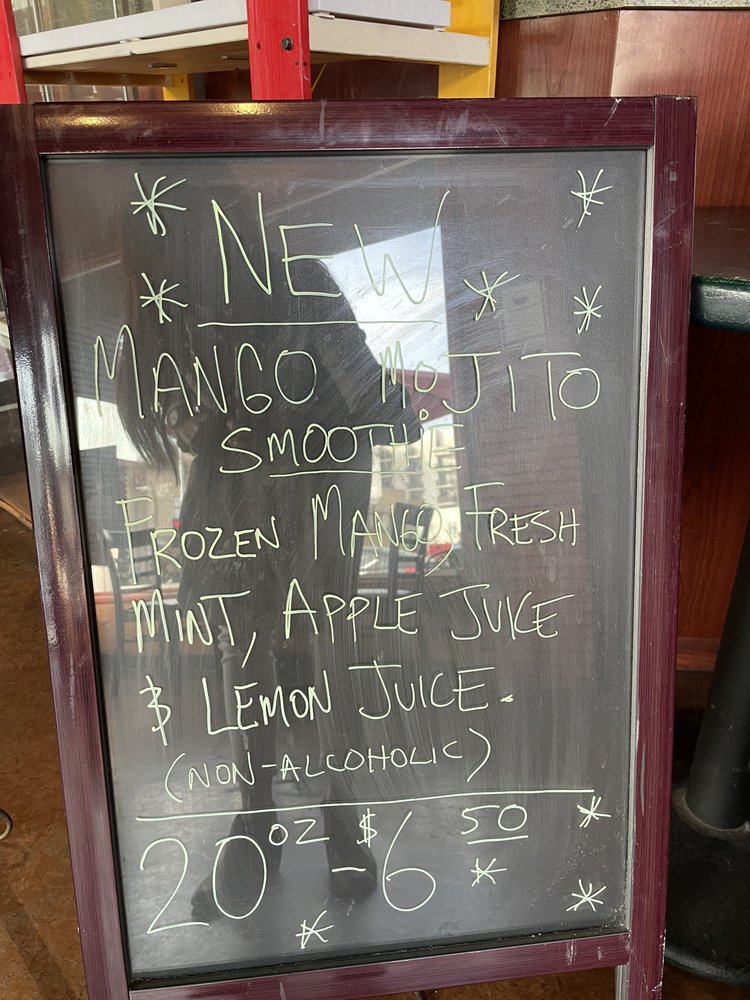 NEW
MANGO MOJITO
SMOOTHiE
FROZEN MANGO, FRESH
MINT, APPLE JUICE
& LEMON JUICE.
(NON-ALCOHOLIC)
20 oz - $6 50